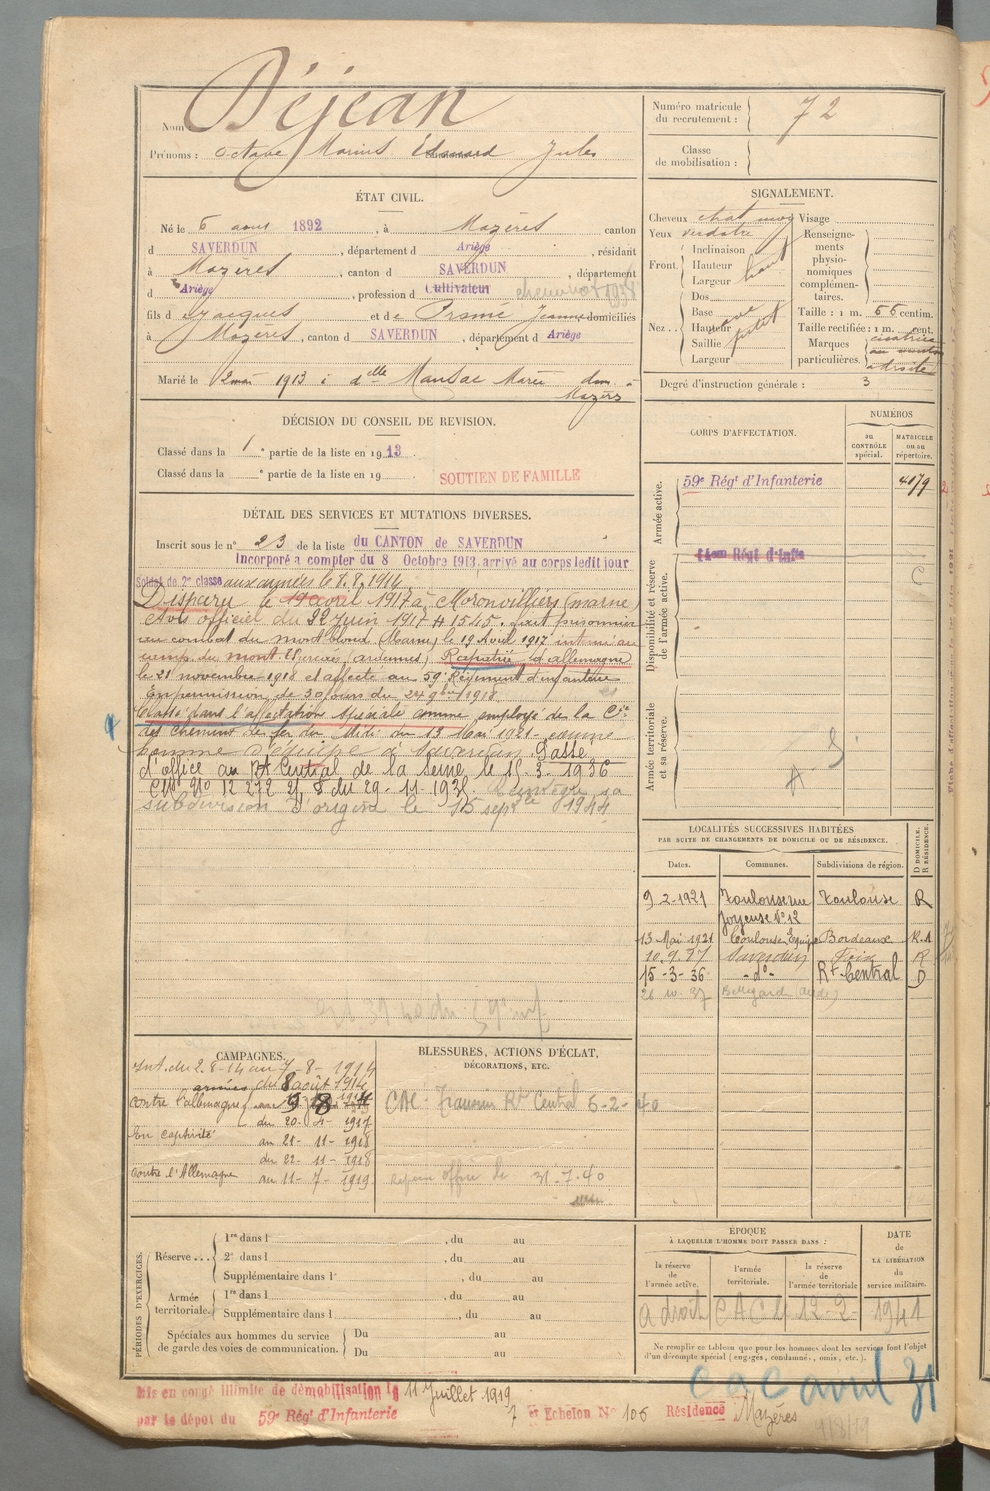 Nom : Déjean
Prénoms : Octave Marius Edouard Jules
Numéro matricule du recrutement : 72
Classe de mobilisation :
ÉTAT CIVIL.
Né le 6 aout 1892, à Mazères canton
d SAVERDUN, département d Ariège, résidant
à Mazères, canton d SAVERDUN, département
d Ariège, profession d Cultivateur cheminot 1938
fils d Jacques et de Pramé Jeanne domiciliés
à Mazères, canton d SAVERDUN, département d Ariège
Marié le 2 mai 1913 à delle Mansac Marie dom. à
Mazères
SIGNALEMENT.
Cheveux chat moy Visage
Yeux verdatre
Front Inclinaison
Hauteur haut
Largeur
Nez Dos
Base
Hauteur
Saillie
Largeur
Renseignements physionomiques complémentaires.
Taille : 1 m. 66 centim.
Taille rectifiée : 1 m. cent.
Marques particulières. cicatrice au menton à droite
Degré d'instruction générale : 3
DÉCISION DU CONSEIL DE REVISION.
Classé dans la 1° partie de la liste en 1913
Classé dans la ° partie de la liste en 19
SOUTIEN DE FAMILLE
DÉTAIL DES SERVICES ET MUTATIONS DIVERSES.
Inscrit sous le n° 23 de la liste du CANTON de SAVERDUN
Incorporé à compter du 8 Octobre 1913, arrivé au corps ledit jour
Soldat de 2e classe aux armées le 8.8.1914
Disparu le 19 avril 1917 à Moronvilliers (marne)
Avis officiel du 22 juin 1917 # 1545. fait prisonnier
au combat du mont blond (Marne) le 19 Avril 1917 interné au
camp du mont (ardennes) Rapatrié d'allemagne
le 21 novembre 1918 et affecté au 59e Régiment d'infanterie
En permission de 30 jours du 24 9bre 1918
Classé dans l'affectation spéciale comme employé de la Cie
des chemins de fer du Midi du 13 Mai 1921 - comme
homme d'équipe à Saverdun. Passé
d'office au Rt Central de la Seine le 15-3-1936
Cire No 12 272 21/8 du 29-11-1935 Réintègre sa
subdivision d'origine le 15 septbre 1944
CORPS D'AFFECTATION.
NUMÉROS
au CONTRÔLE spécial.
MATRICULE ou au répertoire.
Armée active.
59e Régt d'Infanterie 4079
Disponibilité et réserve de l'armée active.
14em Régt d'Infie
Armée territoriale et sa réserve.
LOCALITÉS SUCCESSIVES HABITÉES
PAR SUITE DE CHANGEMENTS DE DOMICILE OU DE RÉSIDENCE.
Dates. Communes. Subdivisions de région. D DOMICILE. R RÉSIDENCE.
9 2-1921 Toulouse rue Joyeuse N° 12 Toulouse R
13 Mai 1921 Toulouse Equipe Bordeaux R.A
10.9.27 Saverdun Foix R
15-3-36 -d°- Rt Central D
26 10-37 Bellegarde (Aude)
CAMPAGNES.
Int. du 2-8-14 au 7-8-1914
armées du 8 août 1914
contre l'allemagne
du 20-4-1917
En captivité au 21-11-1918
du 22-11-1918
contre l'Allemagne au 11-7-1919
BLESSURES, ACTIONS D'ÉCLAT,
DÉCORATIONS, ETC.
CAC - Transmis Rt Central 6-2-40
31-7-40
PÉRIODES D'EXERCICES.
Réserve ... 1re dans l , du au
2e dans l , du au
Supplémentaire dans l' , du au
Armée territoriale. 1re dans l , du au
Supplémentaire dans l , du au
Spéciales aux hommes du service de garde des voies de communication. Du au
Du au
ÉPOQUE
À LAQUELLE L'HOMME DOIT PASSER DANS :
la réserve de l'armée active.
l'armée territoriale.
la réserve de l'armée territoriale
DATE de LA LIBÉRATION du service militaire.
a droit CACU 12-2-1941
Ne remplir ce tableau que pour les hommes dont les services font l'objet
d'un décompte spécial (engagés, condamnés, omis, etc.).
cac avril 31
Mis en congé illimité de démobilisation le 11 Juillet 1919
par le dépôt du 59e Régt d'Infanterie 7 er Echelon N° 106 Résidence Mazères
4/8/19